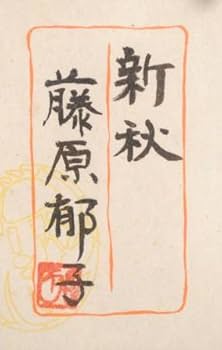 新秋
藤原郁子